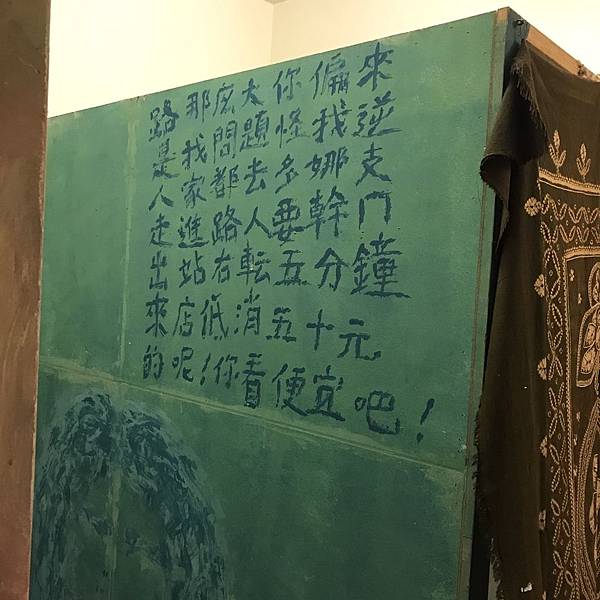 路那庅大你偏來
是我問題怪我逆
人家都去多娜支
走進路人要幹門
出站右転五分鐘
來店低消五十元
的呢!你看便宜吧!